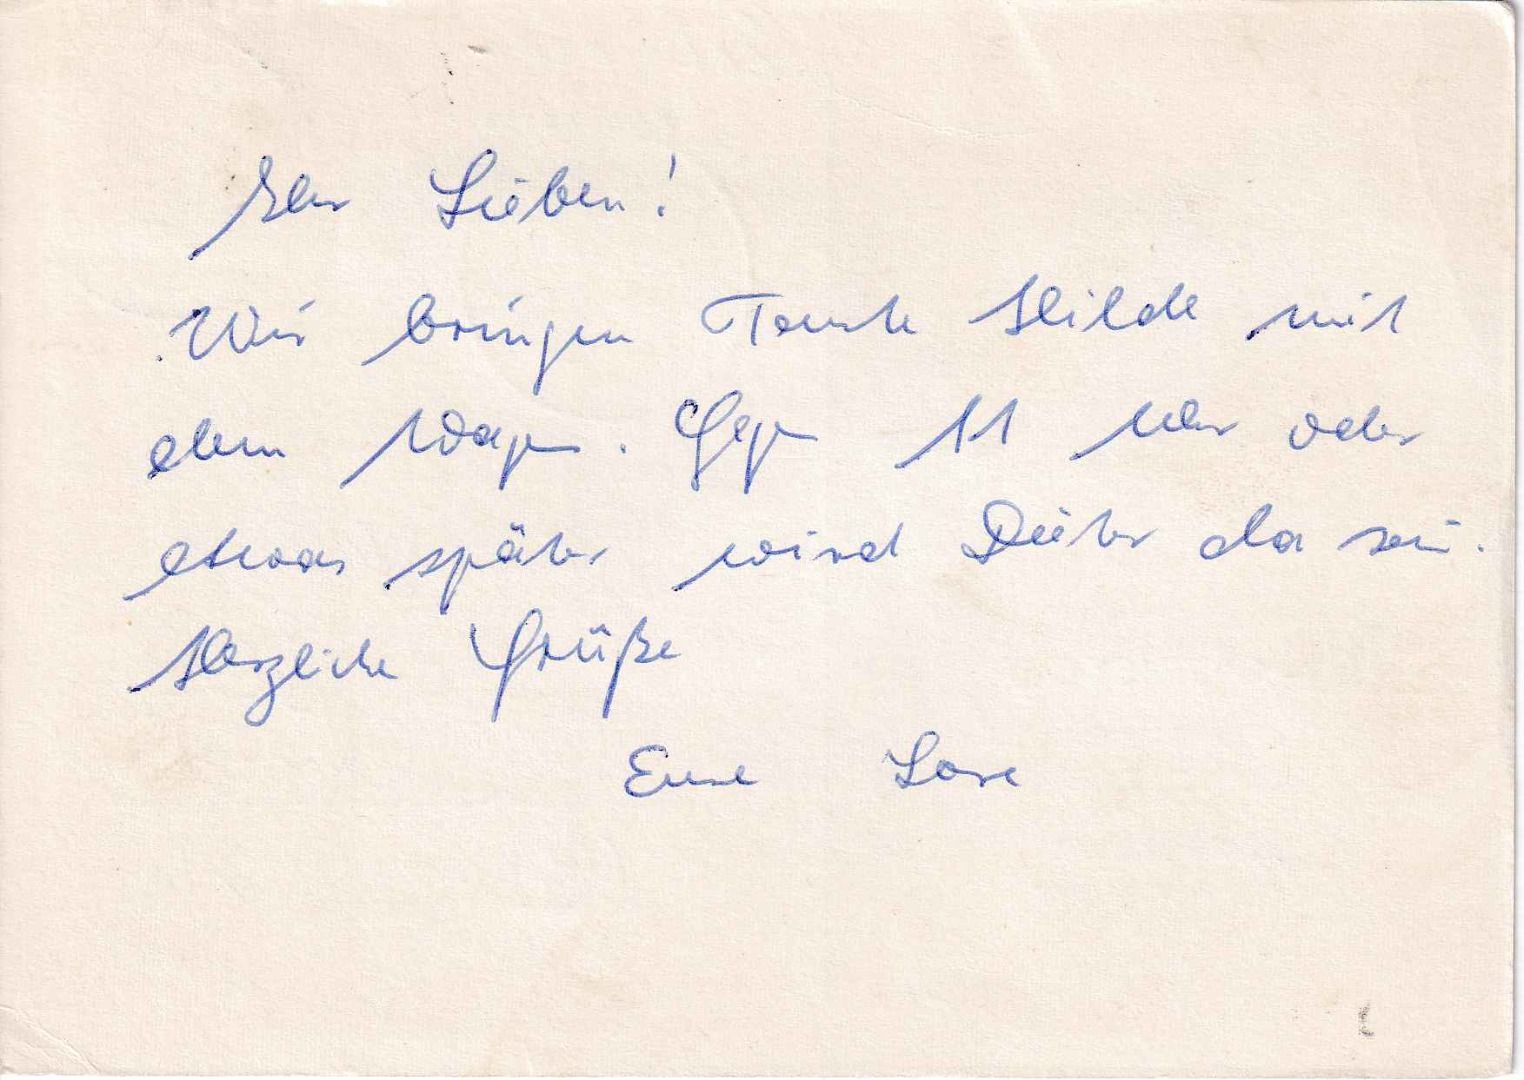 Ihr Lieben!
Wir bringen Tante Hilde mit
dem Wagen. Gegen 11 Uhr oder
etwas später wird Dieter da sein.
Herzliche Grüße
Eure Lore